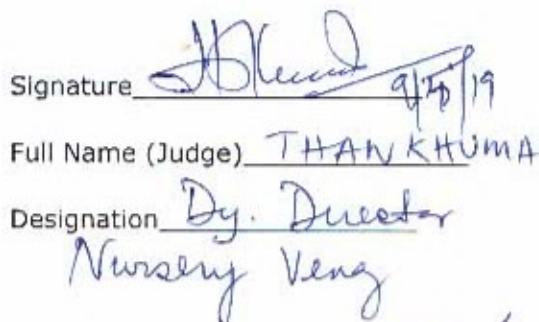 Signature 9/ /19
Full Name (Judge) THANKHUMA
Designation Dy. Director
Nursery Veng